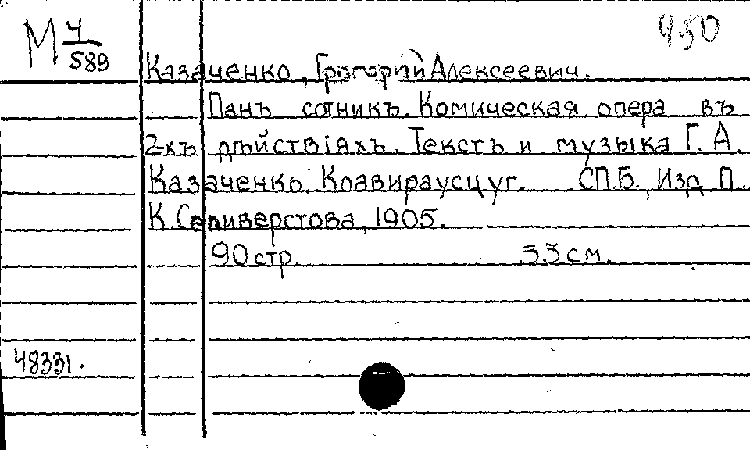 М 4/589
450
Казаченко, Григорий Алексеевич.
Панъ сотникъ. Комическая опера въ
2-хъ дѣйствіяхъ. Текстъ и музыка Г. А.
Казаченко. Клавираусцуг. СП.Б. Изд. П.
К. Селиверстова, 1905.
90 стр. 33 см.
48331.